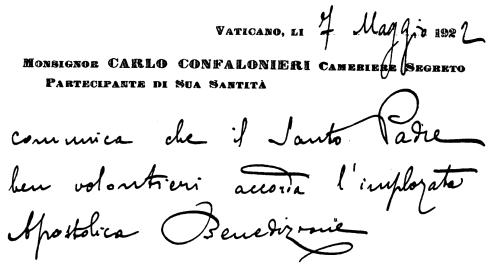 VATICANO, LI 7 Maggio 1922
MONSIGNOR CARLO CONFALONIERI CAMERIERE SEGRETO
PARTECIPANTE DI SUA SANTITÀ
comunica che il Santo Padre
ben volontieri accorda l'implorata
Apostolica Benedizione